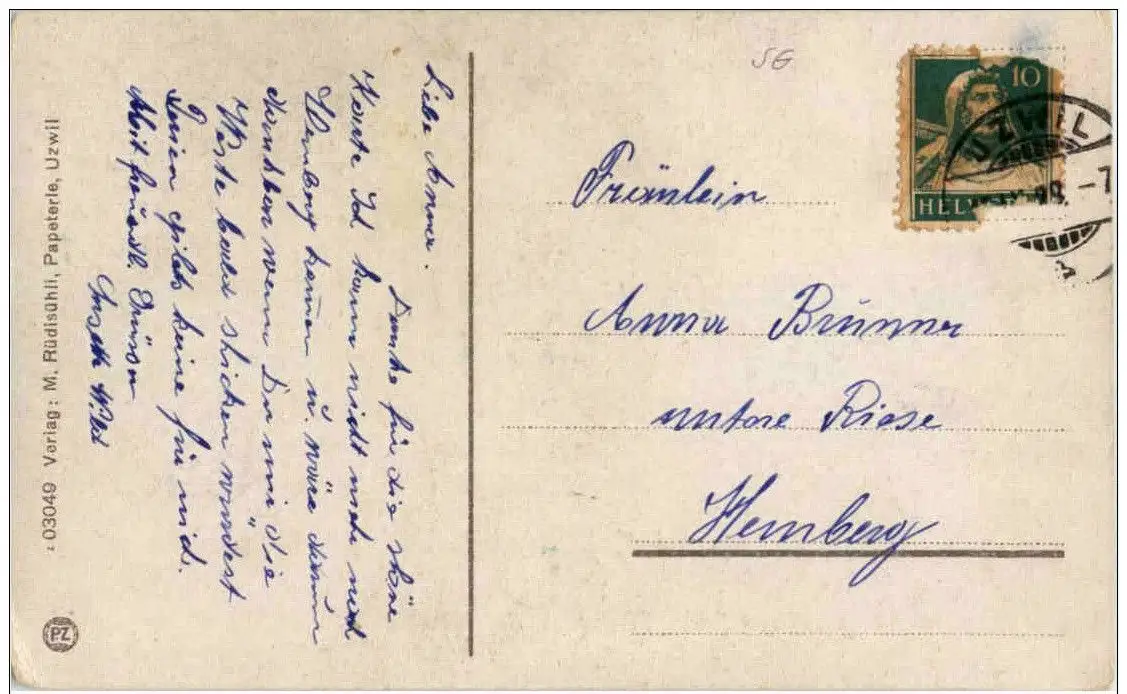 : 03049 Verlag: M. Rüdisühli, Papeterie, Uzwil
PZ
Liebe Anna.
Danke für die schöne
Karte Ich kann nicht mehr nach
Hemberg kommen u. wäre darum
dankbar wenn Du mir die
Weste bald schicken würdest
Ferien gibts keine für mich.
Mit freundl. Grüssen
Wild
SG
10
HELV
UZWIL
Fräulein
Anna Brunner
untere Riese
Hemberg